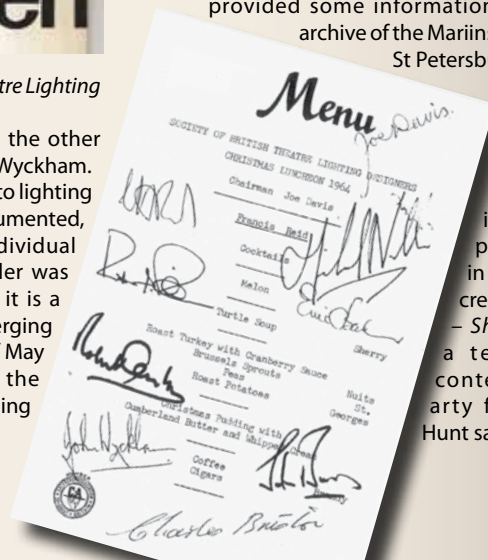 en
provided some information
archive of the Mariins
St Petersb
tre Lighting
the other
Wyckham.
to lighting
umented,
dividual
der was
it is a
erging
May
the
ing
Menu
Joe Davis.
SOCIETY OF BRITISH THEATRE LIGHTING DESIGNERS
CHRISTMAS LUNCHEON 1964
Chairman Joe Davis
Francis Reid
Cocktails
Melon
Turtle Soup
Sherry
Roast Turkey with Cranberry Sauce
Brussels Sprouts
Peas
Roast Potatoes
Nuits
St.
Georges
Christmas Pudding with
Cumberland Butter and Whipped Cream
Brandy
Coffee
Cigars
John Wyckham
Charles Bristow
i
p
in
cre
– Sh
a te
conte
arty f
Hunt sa